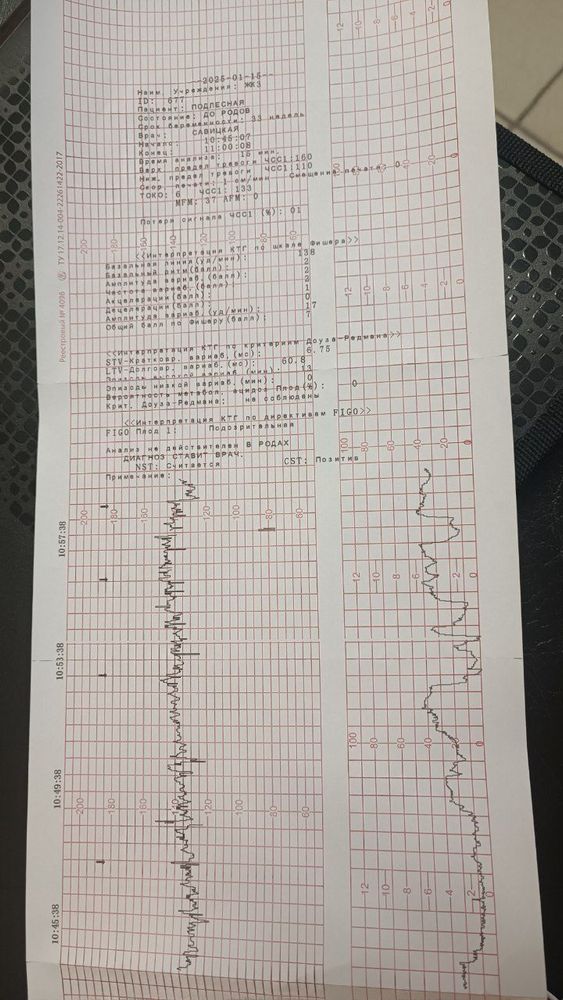 --2026-01-15--
Наим. Учреждения: ЖК3
ID: 677
Пациент: ПОДЛЕСНАЯ
Состояние: ДО РОДОВ
Срок беременности: 33 недель
Врач: САВИЦКАЯ
Начало: 10:45:07
Конец: 11:00:08
Время анализа: 15 мин.
Верх. предел тревоги ЧСС1:160
Ниж. предел тревоги ЧСС1:110
Скор. печати: 1 см/мин Смещение печати: 0
ТОКО: 6 ЧСС1: 133
MFM: 37 AFM: 0
Потеря сигнала ЧСС1 (%): 01
<<Интерпретация КТГ по шкале Фишера>>
Базальная линия(уд/мин): 138
Базальный ритм(балл): 2
Амплитуда вариаб.(балл): 2
Частота вариаб.(балл): 2
Акцелерации(балл): 1
Децелерации(балл): 0
Амплитуда вариаб.(уд/мин): 17
Общий балл по Фишеру(балл): 7
<<Интерпретация КТГ по критериям Доуза-Редмана>>
STV-Кратковр. вариаб.(мс): 6.75
LTV-Долговр. вариаб.(мс): 60.8
вариаб.(мин): 13
Эпизоды низкой вариаб.(мин): 0
Вероятность метабол. ацидоз Плод(%): 0
Крит. Доуза-Редмана: не соблюдены
<<Интерпретация КТГ по директивам FIGO>>
FIGO Плод 1: Подозрительная
Анализ не действителен В РОДАХ
ДИАГНОЗ СТАВИТ ВРАЧ.
NST: Считается CST: Позитив
Примечание:
Реестровый № 4036 ТУ 17.12.14-004-22261422-2017
10:57:38
10:53:38
10:49:38
10:45:38
200 180 140 120 80 60
200 180 140 120 100 80 60
100 80 60 40 20 0
12 10 8 6 4 2 0